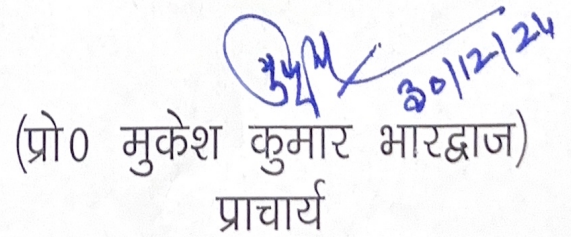 30/12/24
(प्रो0 मुकेश कुमार भारद्वाज)
प्राचार्य